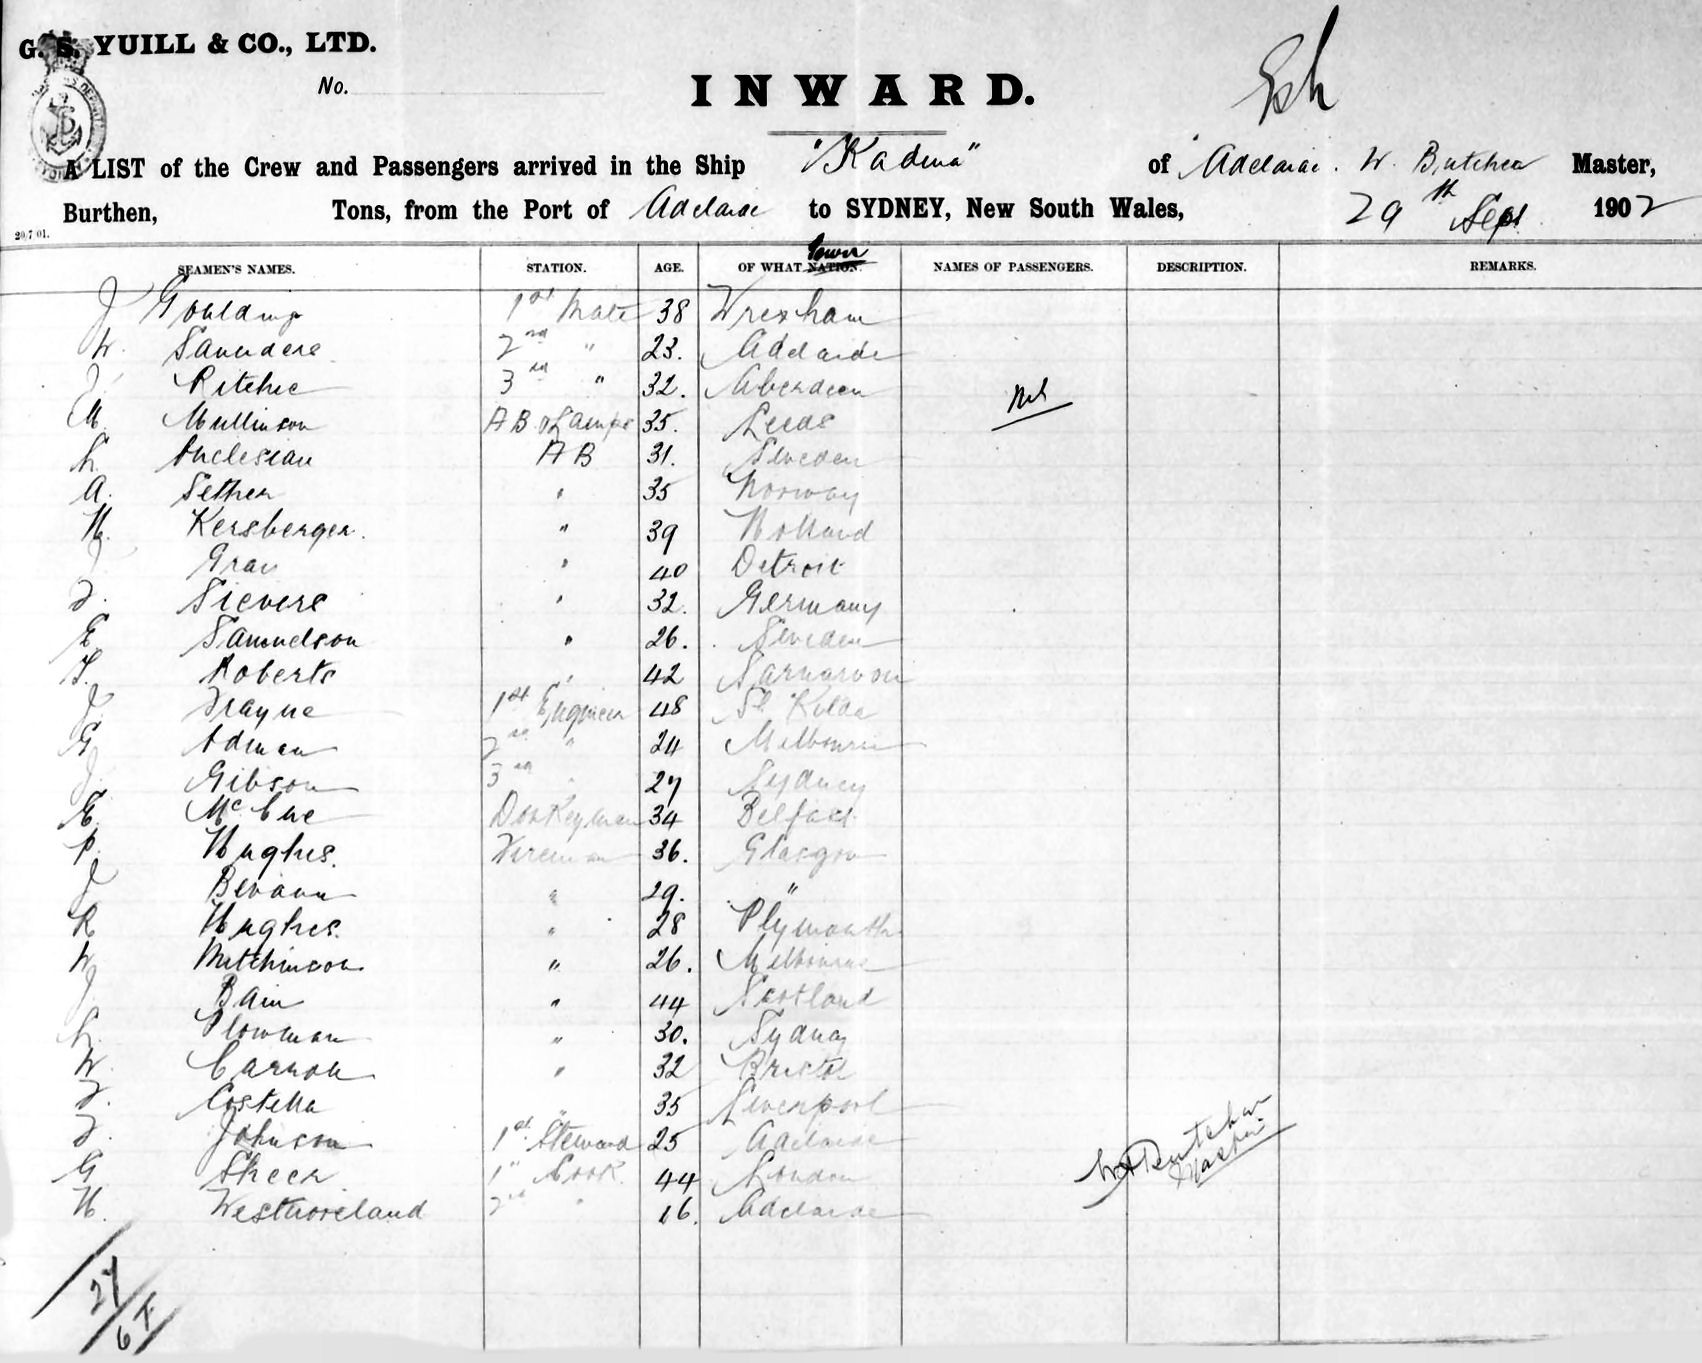 G. S. YUILL & CO., LTD.
No.
INWARD.
A LIST of the Crew and Passengers arrived in the Ship "Kadina" of Adelaide. W. Butcher Master,
Burthen, Tons, from the Port of Adelaide to SYDNEY, New South Wales, 29th Sept 1902
20/7 01.
SEAMEN'S NAMES. STATION. AGE. OF WHAT NATION. Town NAMES OF PASSENGERS. DESCRIPTION. REMARKS.
J Goulding 1st Mate 38 Wrexham
W. Saunders 2nd " 23. Adelaide
J. Ritchie 3rd " 32. Aberdeen
Nil
M. Mullinson AB & Lamps 35. Leeds
AB 31. Sweden
A. Sether " 35 Norway
H. Kersberger. " 39 Holland
J Gray " 40 Detroit
Sievers " 32. Germany
E Samuelson " 26. Sweden
T. Roberts " 42 Carnarvon
J. Frayne 1st Engineer 48 St Kilda
G Adman 2nd " 24 Melbourne
J. Gibson 3rd " 27 Sydney
E. McCue Donkeyman 34 Belfast
P. Hughes. Fireman 36. Glasgow
J Bevann " 29. "
R Hughes. " 28 Plymouth
W Mutchinson " 26. Melbourne
J Bain " 44 Scotland
Plowman " 30. Sydney
W. Carroll " 32 Bristol
Costella " 35 Liverpool
Johnson 1st Steward 25 Adelaide
G Skeer 1" Cook. 44 London
H. Westmoreland 2nd " 16. Adelaide
W Butcher
Master
27
6 F